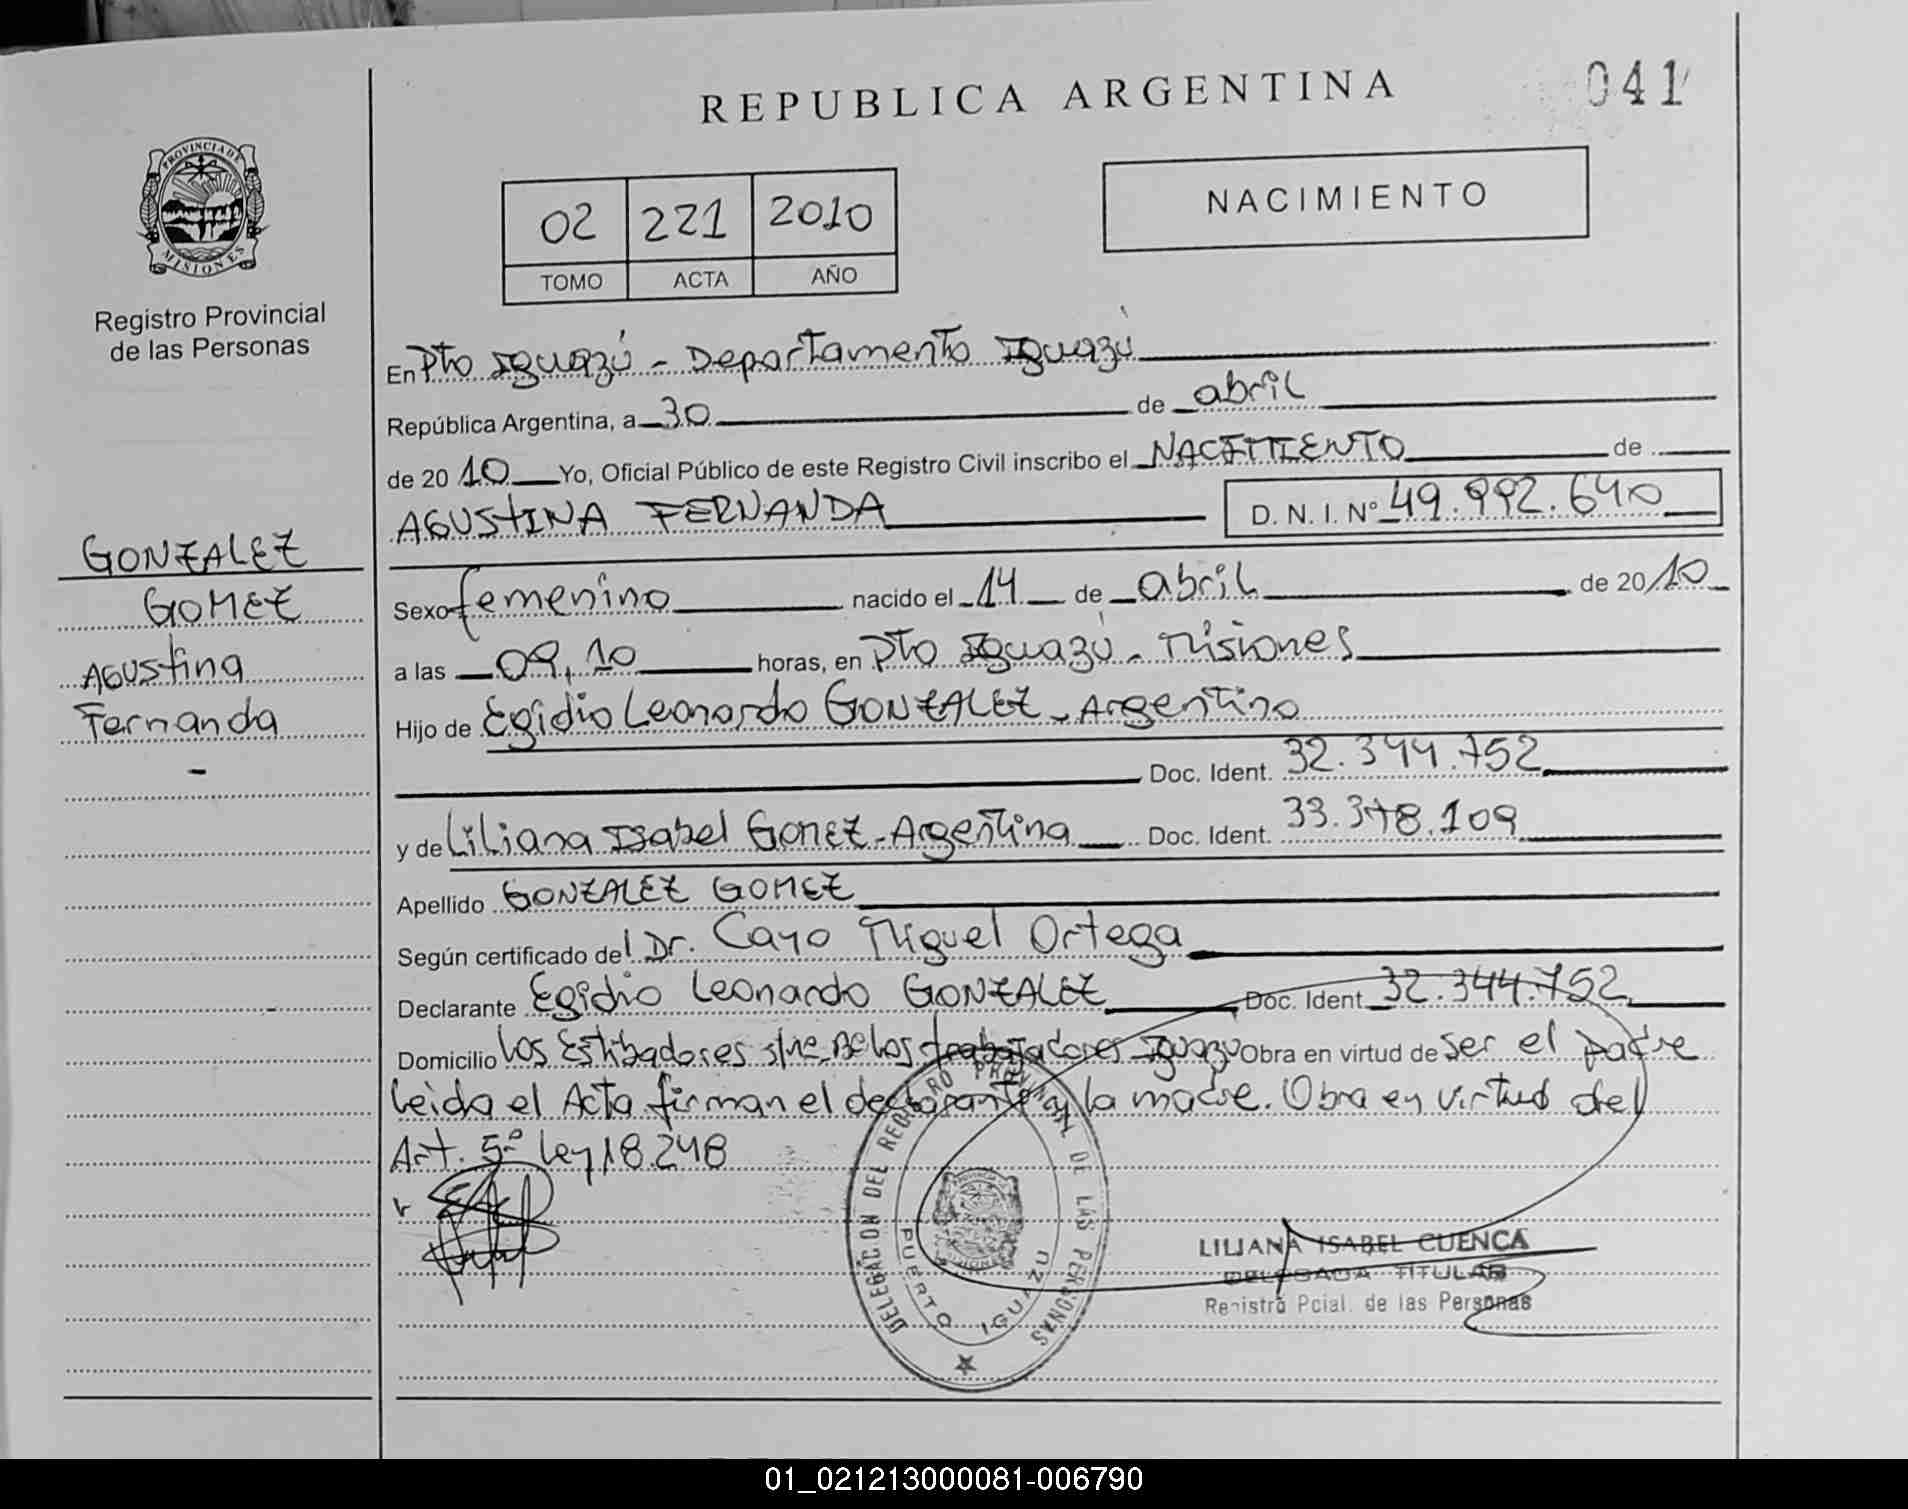 REPUBLICA ARGENTINA
041
PROVINCIA DE
MISIONES
Registro Provincial
de las Personas
02 221 2010
TOMO ACTA AÑO
NACIMIENTO
En Pto Iguazú - Departamento Iguazú
República Argentina, a 30 de abril
de 2010 Yo, Oficial Público de este Registro Civil inscribo el NACIMIENTO de
AGUSTINA FERNANDA D. N. I. Nº 49.992.640
GONZALEZ
GOMEZ
Agustina
Fernanda
-
Sexo femenino nacido el 14 de abril de 2010
a las 09,10 horas, en Pto Iguazú - Misiones
Hijo de Egidio Leonardo GONZALEZ - Argentino
Doc. Ident. 32.344.752
y de Liliana Isabel Gomez - Argentina Doc. Ident. 33.378.109
Apellido GONZALEZ GOMEZ
Según certificado del Dr. Cayo Miguel Ortega
Declarante Egidio Leonardo GONZALEZ Doc. Ident 32.344.752
Domicilio los Estibadores s/nº Bº los trabajadores Iguazú Obra en virtud de ser el padre
leida el Acta firman el declarante y la madre. Obra en virtud del
Art. 5º Ley 18.248
DELEGACION DEL REGISTRO PROVINCIAL DE LAS PERSONAS
PUERTO IGUAZU
LILIANA ISABEL CUENCA
DELEGADA TITULAR
Registro Pcial. de las Personas
01_021213000081-006790